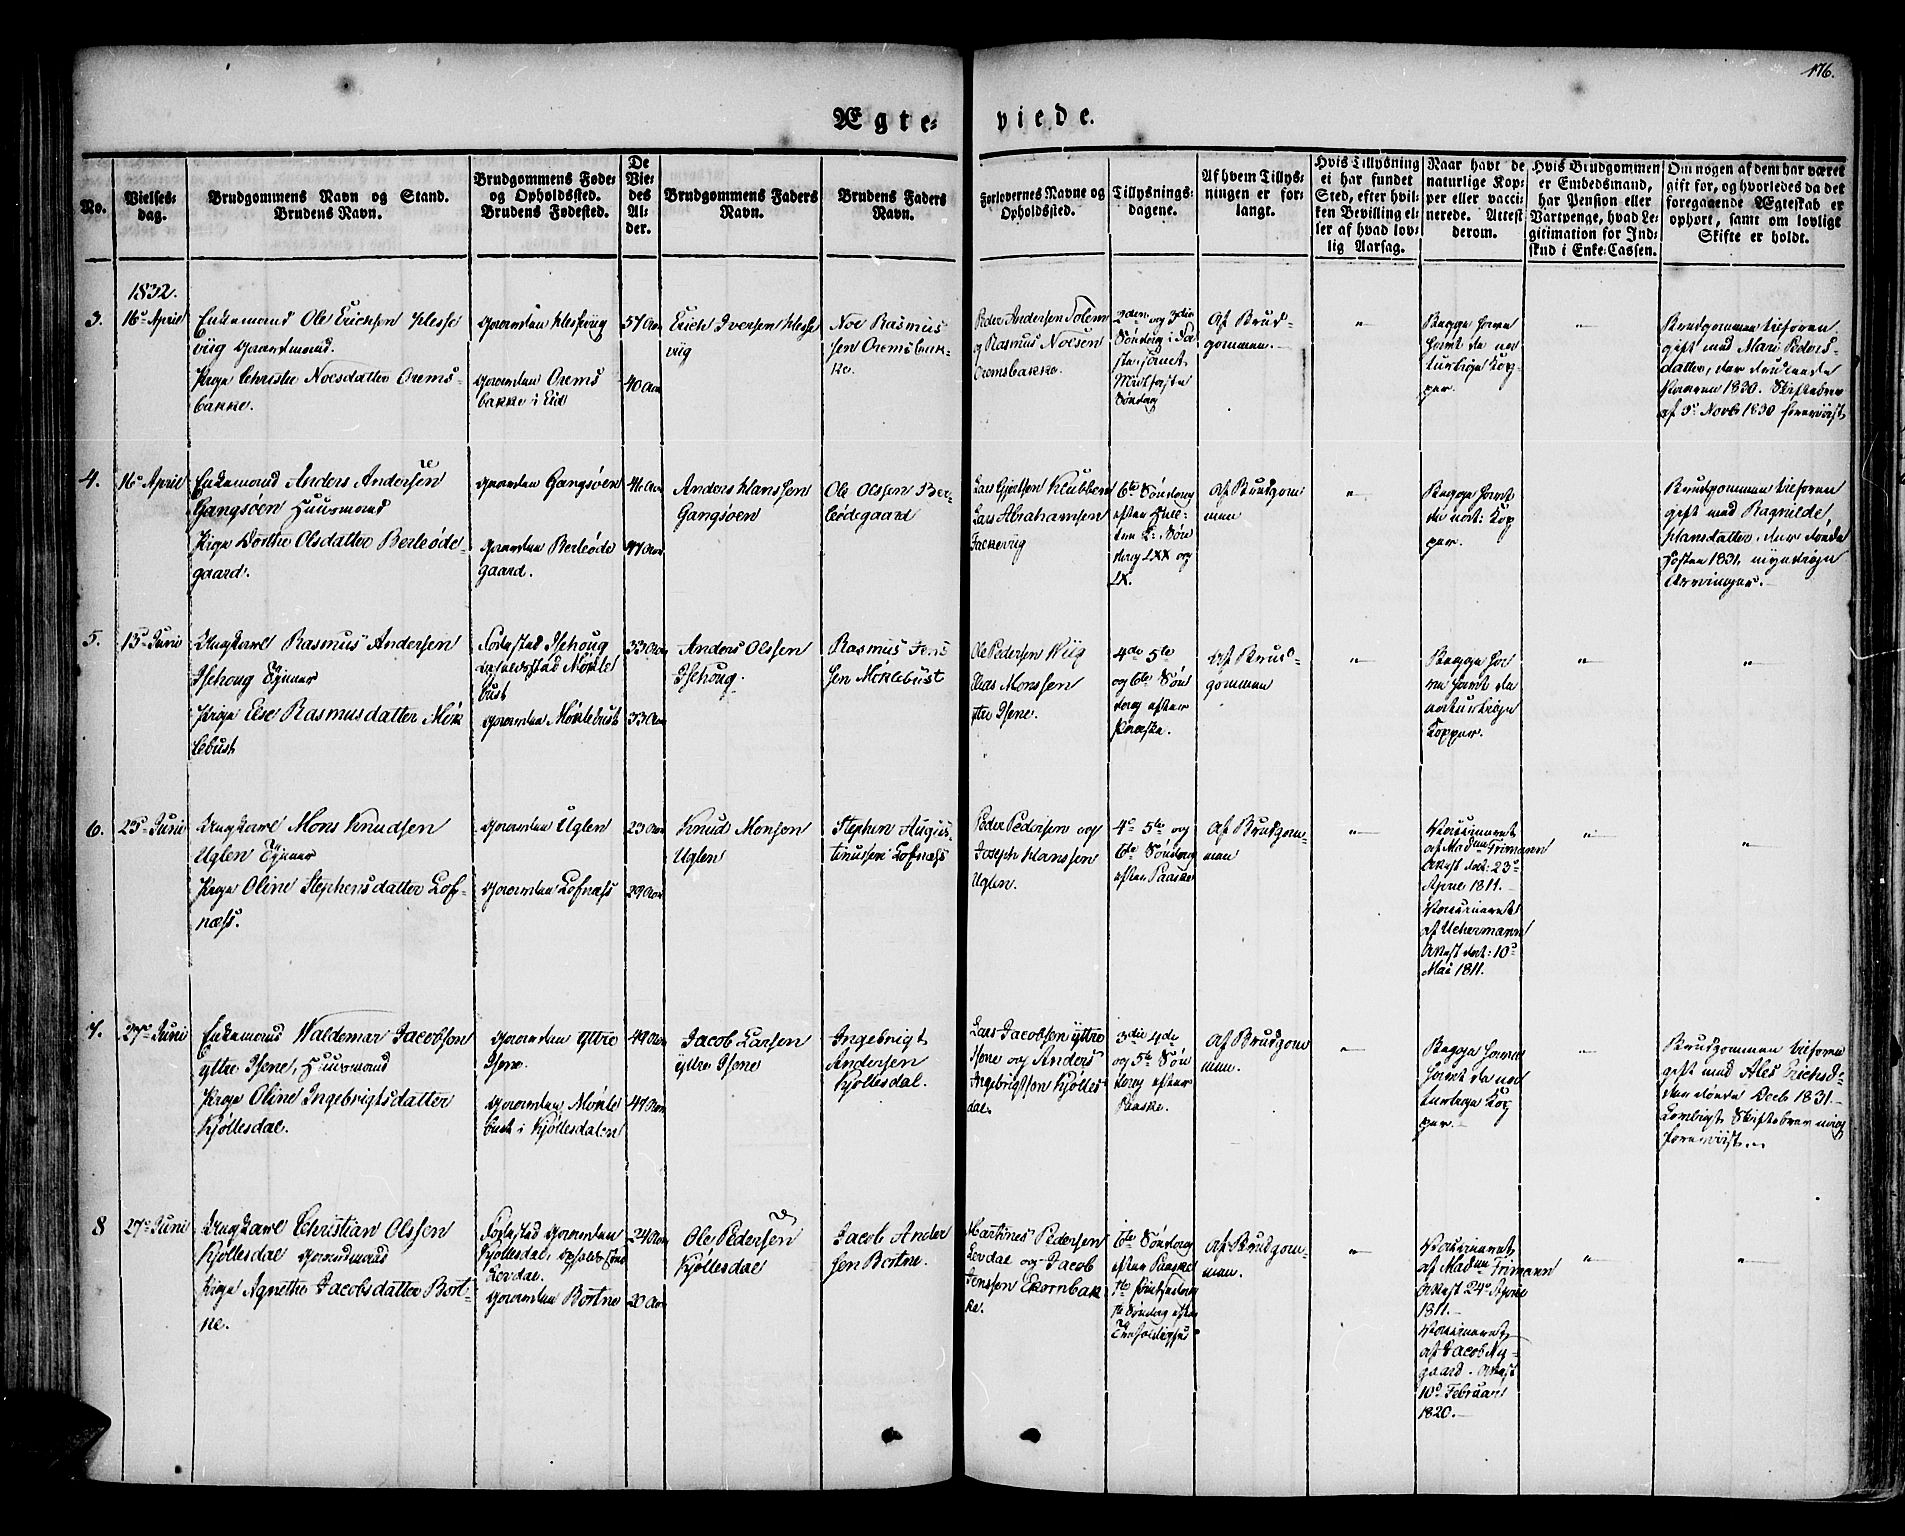 176.
Ægte-
viede.
No.
Vielses-
dag.
Brudgommens Navn og Stand.
Brudens Navn.
Brudgommens Føde-
og Opholdssted.
Brudens Fødested.
De
Vie-
des
Al-
der.
Brudgommens Faders
Navn.
Brudens Faders
Navn.
Forlovernes Navne og
Opholdssted.
Tillysnings-
dagene.
Af hvem Tillys-
ningen er for-
langt.
Hvis Tillysning
ei har fundet
Sted, efter hvil-
ken Bevilling el-
ler af hvad lov-
lig Aarsag.
Naar havt de
naturlige Kop-
per eller vacci-
nerede. Attest
derom.
Hvis Brudgommen
er Embedsmand,
har Pension eller
Vartpenge, hvad Le-
gitimation for Ind-
skud i Enke-Cassen.
Om nogen af dem har været
gift før, og hvorledes da det
foregaaende Ægteskab er
ophørt, samt om lovligt
Skifte er holdt.
1832.
3.
16de April
Enkemand Ole Ericksen Klesse
viig Gaardmand.
Pige Christie Noesdatter Orems-
bakke.
Gaarden Klesseviig
Gaarden Orems
bakke i Eid
57 Aar
40 Aar
Erich Iversen Klesse
viig
Noe Rasmus
sen Oremsbak-
ke.
Peder Andersen Solem
og Rasmus Noesen
Oremsbakke.
2den og 3die
Søndag i Fa
ste, samt
Midfaste
Søndag
Af Brud-
gommen.
"
Begge have
havt de na
turlige Kop
per.
"
Brudgommen tilforen
gift med Mari Peders-
datter, der døde
Aaren 1830. Skiftebrev
af 5te Novb 1830 foreviist
4.
16de April
Enkemand Anders Andersen
Gangsøen Huusmand
Pige Dorthe Olsdatter Berleøde-
gaard.
Gaarden Gangsøen
Gaarden Berleøde
gaard.
46 Aar
47 Aar
Anders Hanssen
Gangsøen
Ole Olssen Ber-
leødegaard
Lars Gjertsen Klubben
Lars Abrahamsen
6te Søndag
efter Hel-
tre K: Søn
dag LXX og
LX.
af Brudgom
men
"
Begge havt
de nat: Kop
per.
Brudgommen tilforen
gift med Ragnilde
Hansdatter, der døde
Høsten 1831, myndige
Arvinger.
5.
15de Juni
Ungkarl Rasmus Andersen
Isehoug Eyner
Pige Else Rasmusdatter Møk
lebust
Fødested Isehoug
Opholdsstad Møkle
bust
Gaarden Møklebust
33 Aar
33 Aar
Anders Olssen
Isehoug.
Rasmus Jens
sen Møklebust
Ole Pedersen Wiig
Elias Monssen
ytre Isene.
4de 5te
og 6te Søn
dag efter
Paaske.
af Brud-
gommen
"
Begge ha
ve havt de
naturlige
Kopper.
"
"
6.
25de Juni
Ungkarl Mons Knudsen
Uglen Eyner
Pige Oline Stephensdatter Lof-
næss.
Gaarden Uglen
Gaarden Lofnæss
23 Aar
29 Aar
Knud Monsen
Uglen
Stephen Augus-
tinussen Lofnæss
Peder Pedersen og
Joseph Hanssen
Uglen.
4de 5te og
6te Søndag
efter Paaske
af Brudgom-
men
"
Vaccineret
af Mad me Frimann
Attest dat: 23de
April 1811.
Vaccineret
af Uchermann
Attest dat: 10de
Mai 1811.
"
"
7.
27de Juni
Enkemand Waldemar Jacobsen
ytre Isene, Huusmand
Pige Oline Ingebrigtsdatter
Kjøllesdal.
Gaarden Yttre
Isene.
Gaarden Møkle
bust i Kjøllesdalen
49 Aar
41 Aar
Jacob Larsen
yttre Isene
Ingebrigt
Andersen
Kjøllesdal.
Lars Jacobsen yttre
Isene og Anders
Ingebrigtsen Kjølles
dal.
3die 4de
og 5te Søn
dag efter
Paaske.
af Brudgom
men.
"
Begge have
havt de na
turlige Kop
per.
"
Brudgommen tilforen
gift med Ales Erichsd-
der døde Decb 1831.
Lovligt Skiftebrev
foreviist.
8
27de Juni
Ungkarl Christian Olssen
Kjøllesdal Gaardmand
Pige Agnethe Jacobsdatter Bort-
ne.
Fødestad Gaarden
Kjøllesdal, Opholdssted
Levdal.
Gaarden Bortne
24 Aar
20 Aar
Ole Pedersen
Kjøllesdal
Jacob Ander
sen Bortne.
Martines Pedersen
Levdal og Jacob
Jenssen Ekornbak
ke.
6te Søndag
efter Paaske
1te Pintsedag
1te Søndag efter
Trefoldighed
af Brudgom-
men.
"
Vaccineret
af Mad me Frimann
Attest 24de April
1811.
Vaccineret
af Jacob Ny-
gaard. Attest
10de Februari
1820.
"
"